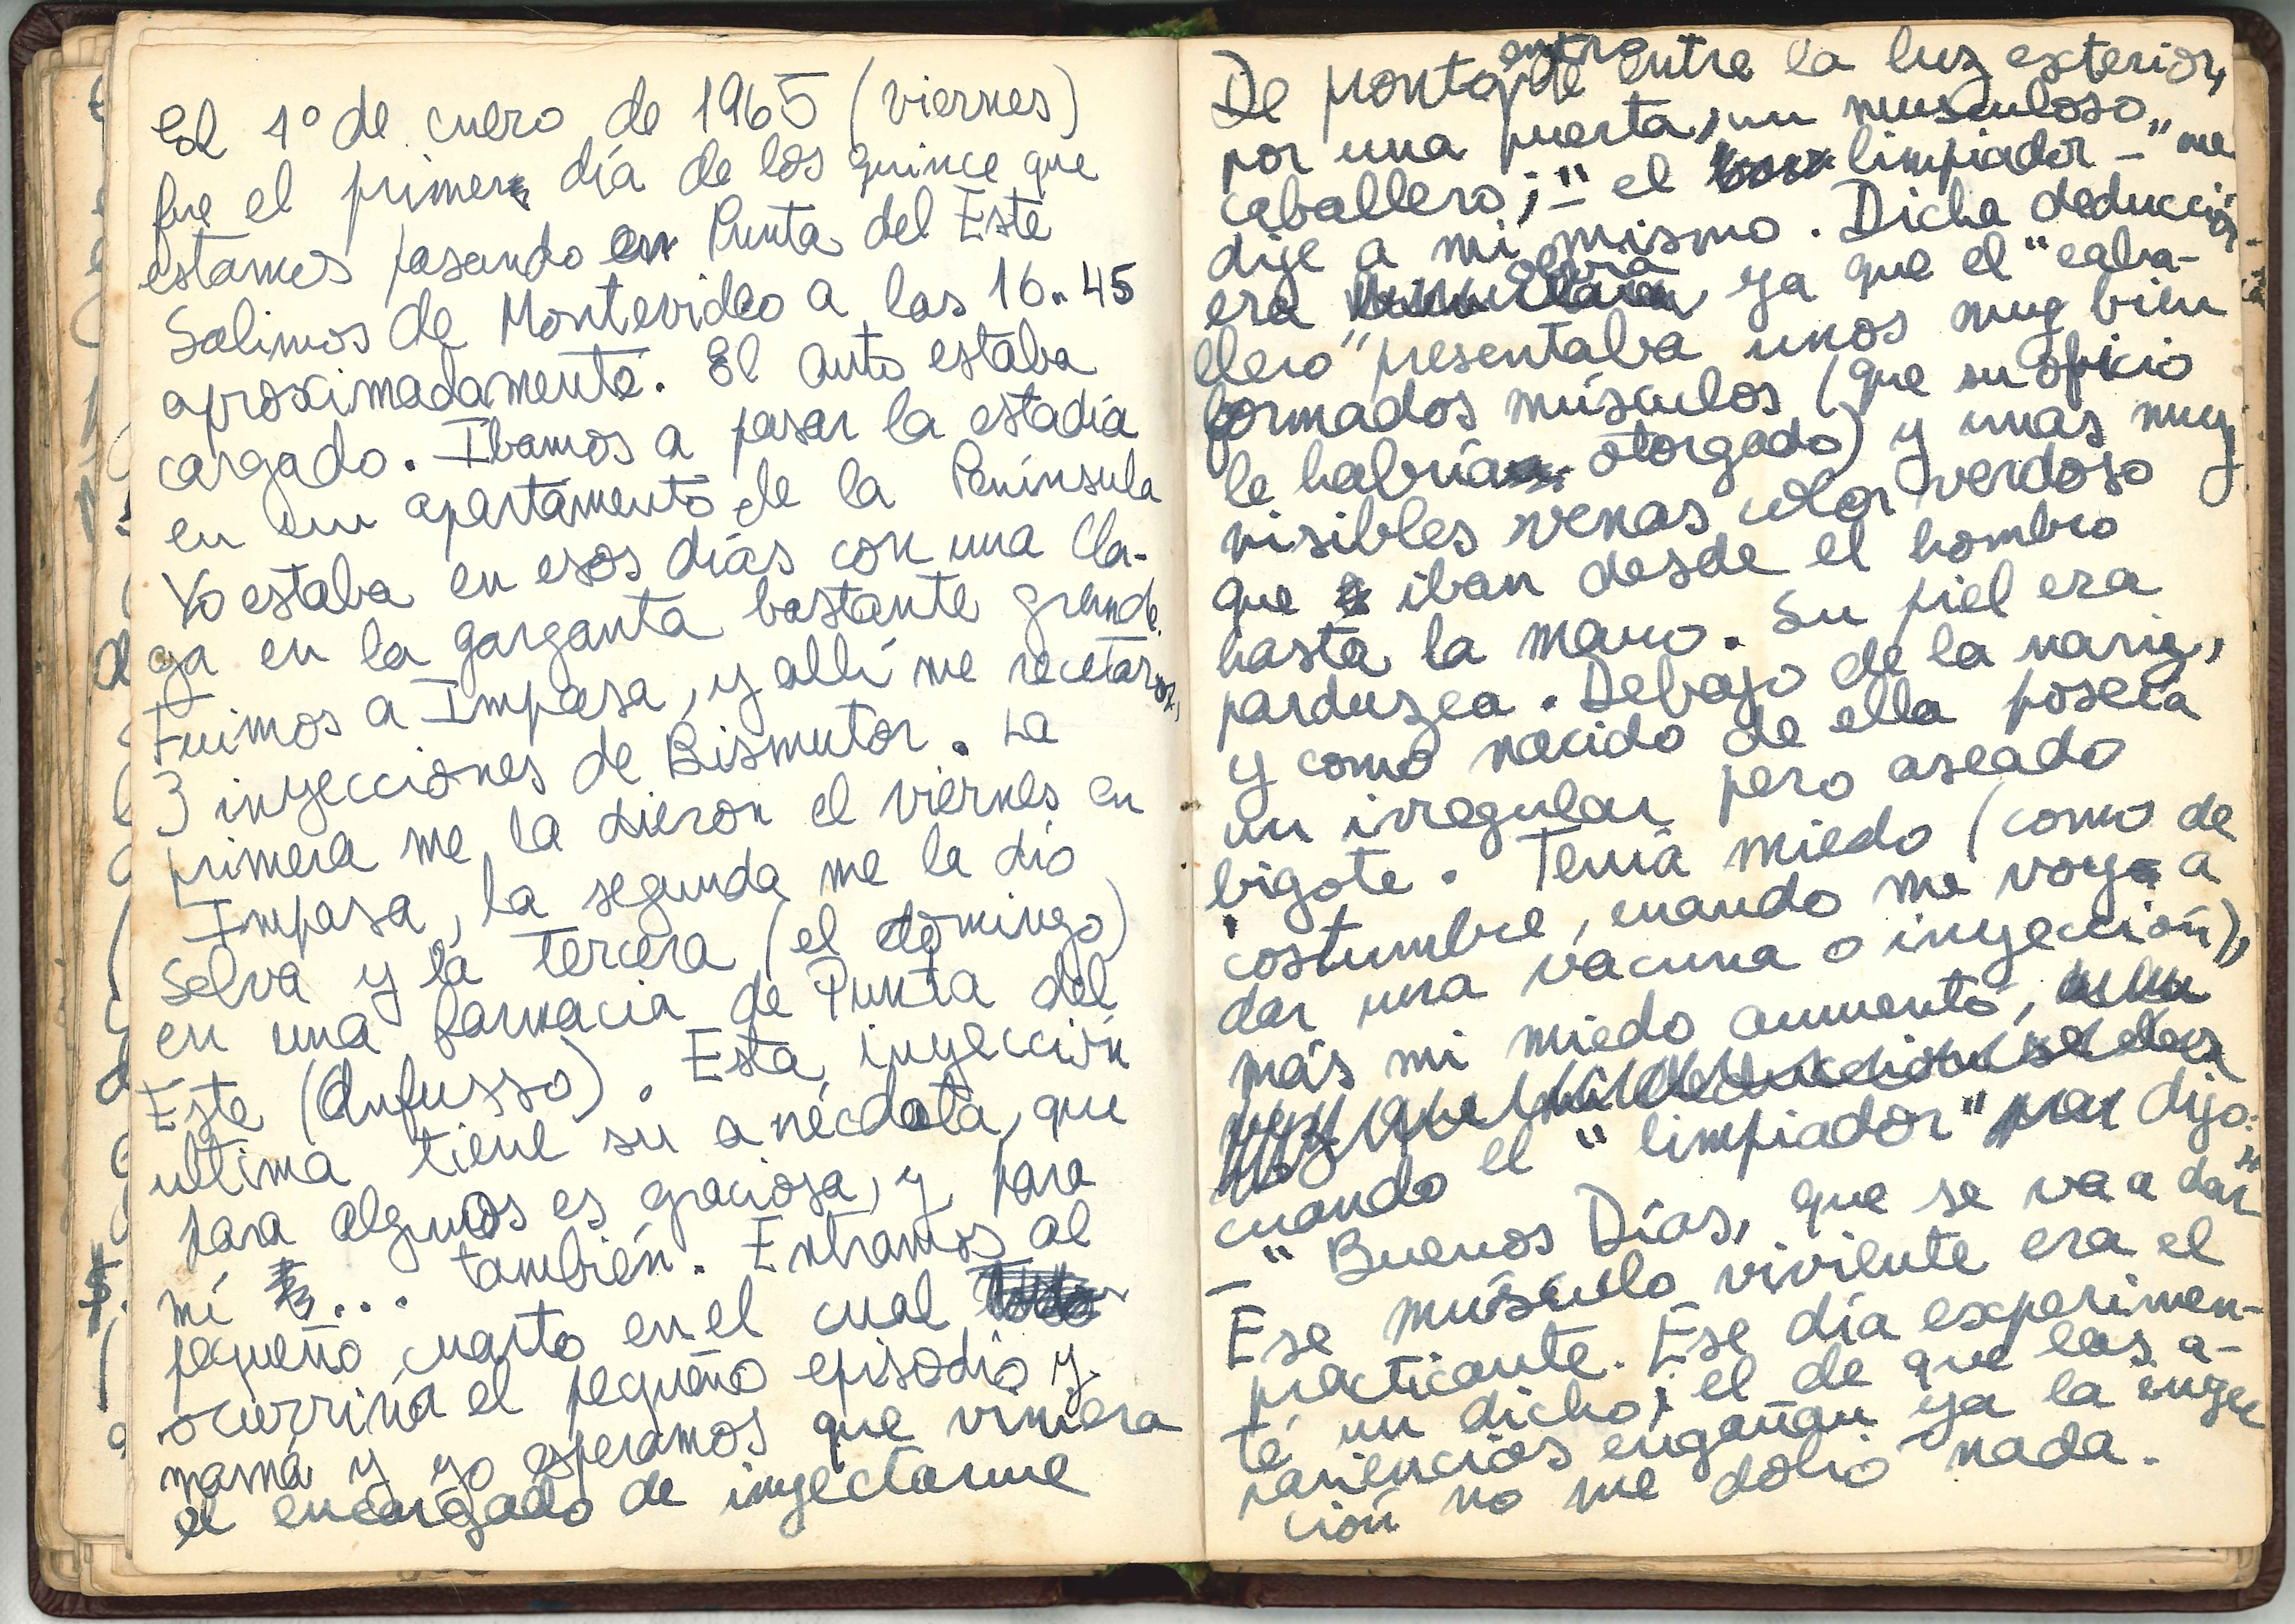 El 1º de enero de 1965 (viernes)
fue el primer día de los quince que
estamos pasando en Punta del Este
Salimos de Montevideo a las 16.45
aproximadamente. El auto estaba
cargado. Ibamos a pasar la estadía
en un apartamento de la Península
Yo estaba en esos días con una lla-
ga en la garganta bastante grande.
Fuimos a Impasa, y allí me recetaron,
3 inyecciones de Bismutor. La
primera me la dieron el viernes en
Impasa, la segunda me la dió
Selva y la tercera (el domingo)
en una farmacia de Punta del
Este (Infusso). Esta inyección
ultima tiene su anécdota, que
para algunos es graciosa, y para
mí ... también. Entramos al
pequeño cuarto en el cual
ocurriría el pequeño episodio y
mamá y yo esperamos que viniera
el encargado de inyectarme
De pronto, entre la luz exterior,
por una puerta, un musculoso
caballero; "- el limpiador -" me
dije a mí mismo. Dicha deducción
era obvia ya que el "caba-
llero" presentaba unos muy bien
formados músculos (que su oficio
le habría otorgado) y unas muy
visibles venas color verdoso
que iban desde el hombro
hasta la mano. Su piel era
parduzca. Debajo de la nariz,
y como nacido de ella poseía
un irregular pero aseado
bigote. Tenía miedo (como de
costumbre, cuando me voy a
dar una vacuna o inyección),
más mi miedo aumentó,
cuando el "limpiador" dijo:
-"Buenos Días, que se va a dar"
Ese músculo viviente era el
practicante. Ese día experimen-
té un dicho; el de que las a-
pariencias engañan ya la inyec
ción no me dolió nada.